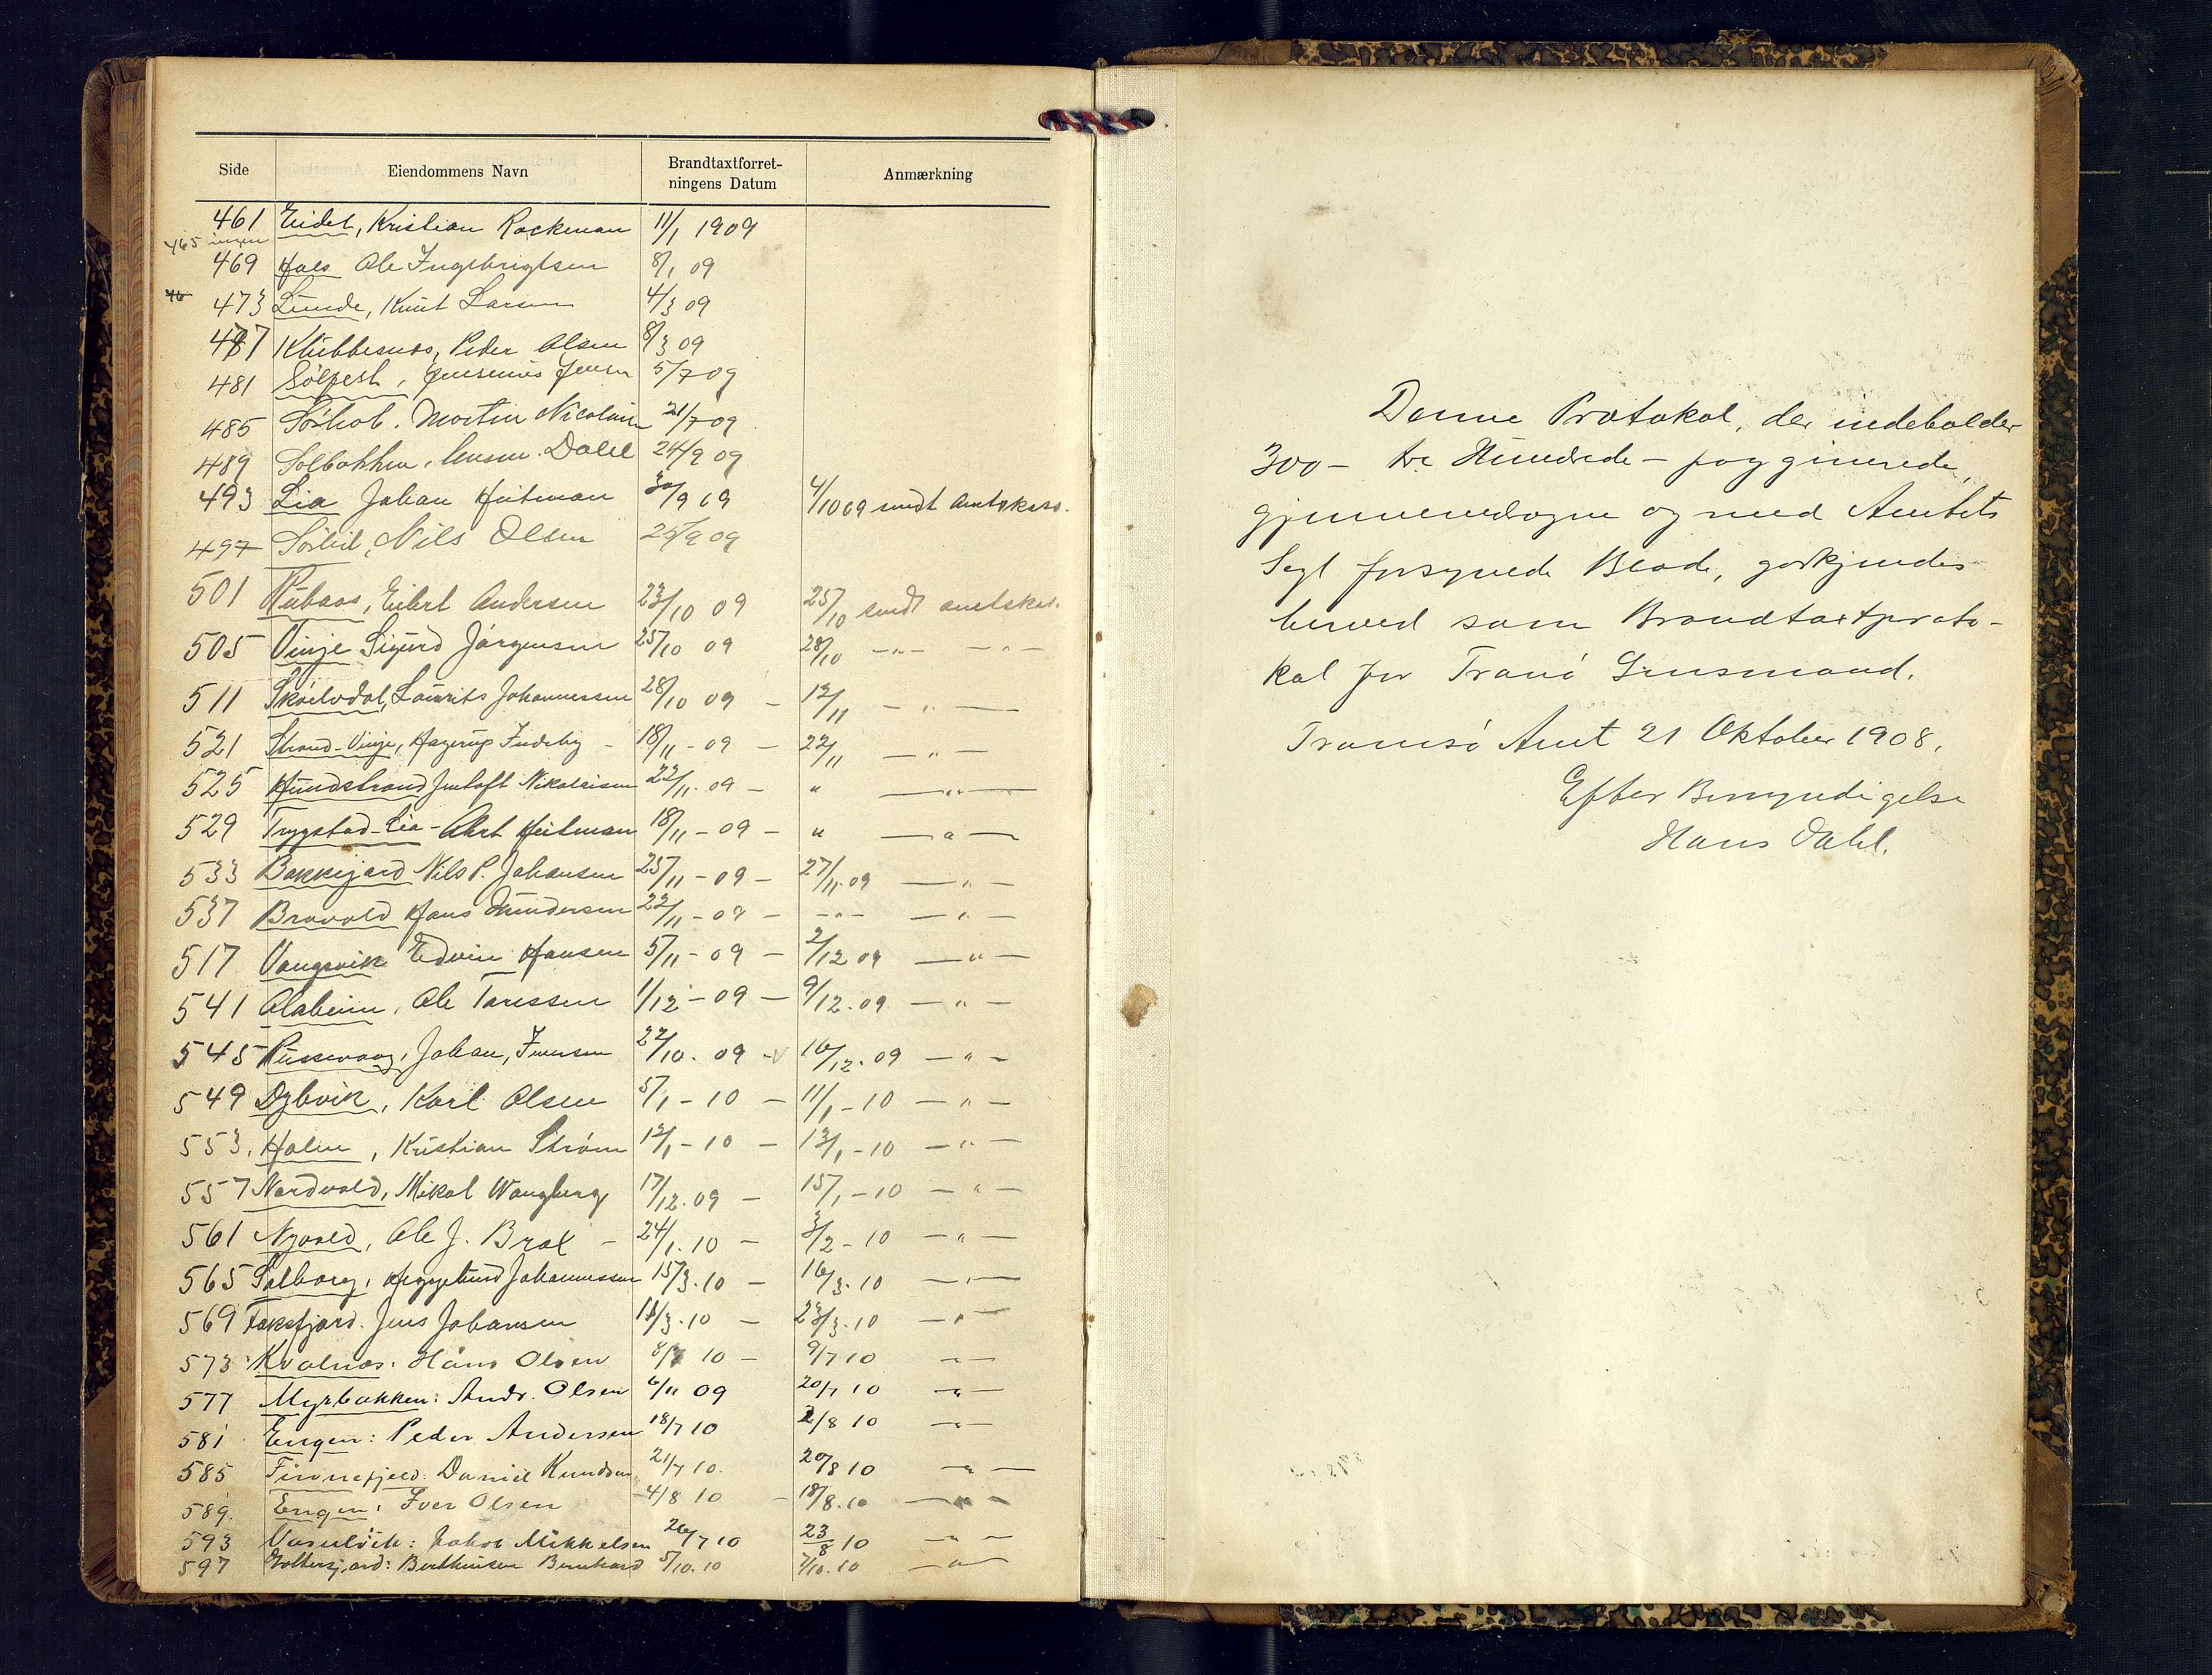 Side Eiendommens Navn Brandtaxtforret-ningens Datum Anmærkning
461 Eidet, Kristian Rackman 11/1 1909
465 ingen
469 Hals Ole Ingebrigtsen 8/1 09
473 Lunde, Knut Larsen 4/3 09
477 Klubbesnæs, Peder Olsen 8/3 09
481 Jensen 5/7 09
485 Martin 21/7 09
489 Solbakken, Dahl 24/9 09
493 Lia Johan Heitman 30/9 09 4/10 09 sendt Amtskass.
497 Nils Olsen 25/9 09
501 Rubaas, Eilert Andersen 23/10 09 25/10 sendt amtskas.
505 Vinje Sigurd Jörgensen 25/10 09 28/10 —"— —"—
511 Laurits Johannessen 28/10 09 — 12/11 — " —
521 Strand-Vinje, Hagerup Indeby — 18/11 - 09 — 22/11 — " —
525 Hundstrand Jentoft Nikolaisen 22/11 - 09 — " — " —
529 Trygstad-Lia - Heitman 18/11 - 09 — " — " —
533 Bakkejord Nils P. Johansen 25/11 - 09 — 27/11 09 — " —
537 Bravold Hans 22/11 - 09 — — " — — " —
517 Vangsvik Edvin Hansen 5/11 - 09 — 2/12 09 — " —
541 Olaheim, Ole Tarissen 1/12 - 09 — 9/12 . 09 — " —
545 Russevaag, Johan, Iversen 22/10 . 09 — 16/12 . 09 — " —
549 Dybvik, Karl Olsen 5/1 - 10 — 11/1 - 10 — " —
553. Holm, Kristian Ström 12/1 - 10 — 13/1 - 10 — " —
557 Nordvold, Mikal Wangberg 17/12 . 09 — 15/1 - 10 — " —
561 Nyvold, Ole J. Brox — 24/1 . 10 — 3/2 - 10 — " —
565 Solborg, Johannessen 15/3 . 10 — 16/3 . 10 — " —
569 Jens Johansen 18/3 . 10 — 23/3 . 10 — " —
573 Kvalnæs: Hans Olsen 10 — 9/7 10 — " —
577 Myrbakken: Andr. Olsen 6/11 09 20/7 10 — " —
581 Engen: Peder Andersen 18/7 10 2/8 10 — " —
585 Finnefjeld: Daniel Knudsen 21/7 10. 20/8 10 — " —
589. Engen: Iver Olsen 4/8 10 — 18/8 . 10 — " —
593 Jakob Mikkelsen 26/7 10 23/8 10 — " —
597 Berthinsen Bernhard 5/10 . 10 7/10 . 10 — " —
Denne Protokol, der indeholder
300 — tre Hundrede — paginerede,
gjennemdragne og med Amtets
Segl forsynede Blade, godkjendes
herved som Brandtaxtproto-
kol for Tranö Lensmand.
Tromsö Amt 21 Oktober 1908.
Efter Bemyndigelse
Hans Dahl.